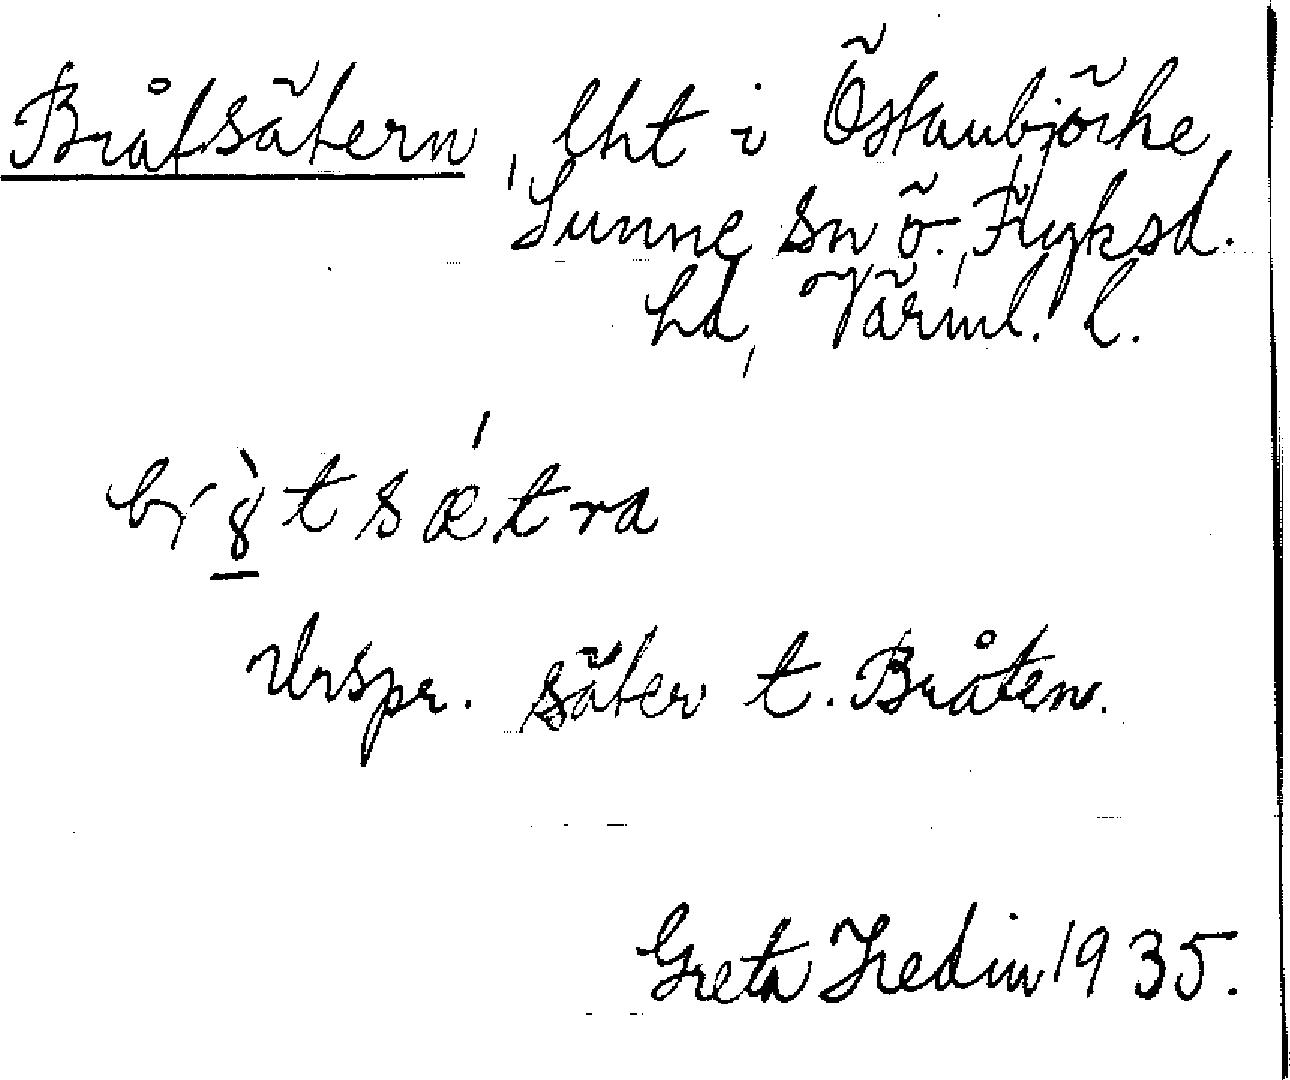 Bråtsätern, lht i Östanbjörke,
Sunne sn Ö. Fryksd.
hd, Värml. l.
br8̀tsǽtra
Urspr. säter t. Bråten.
Greta Hedin 1935.